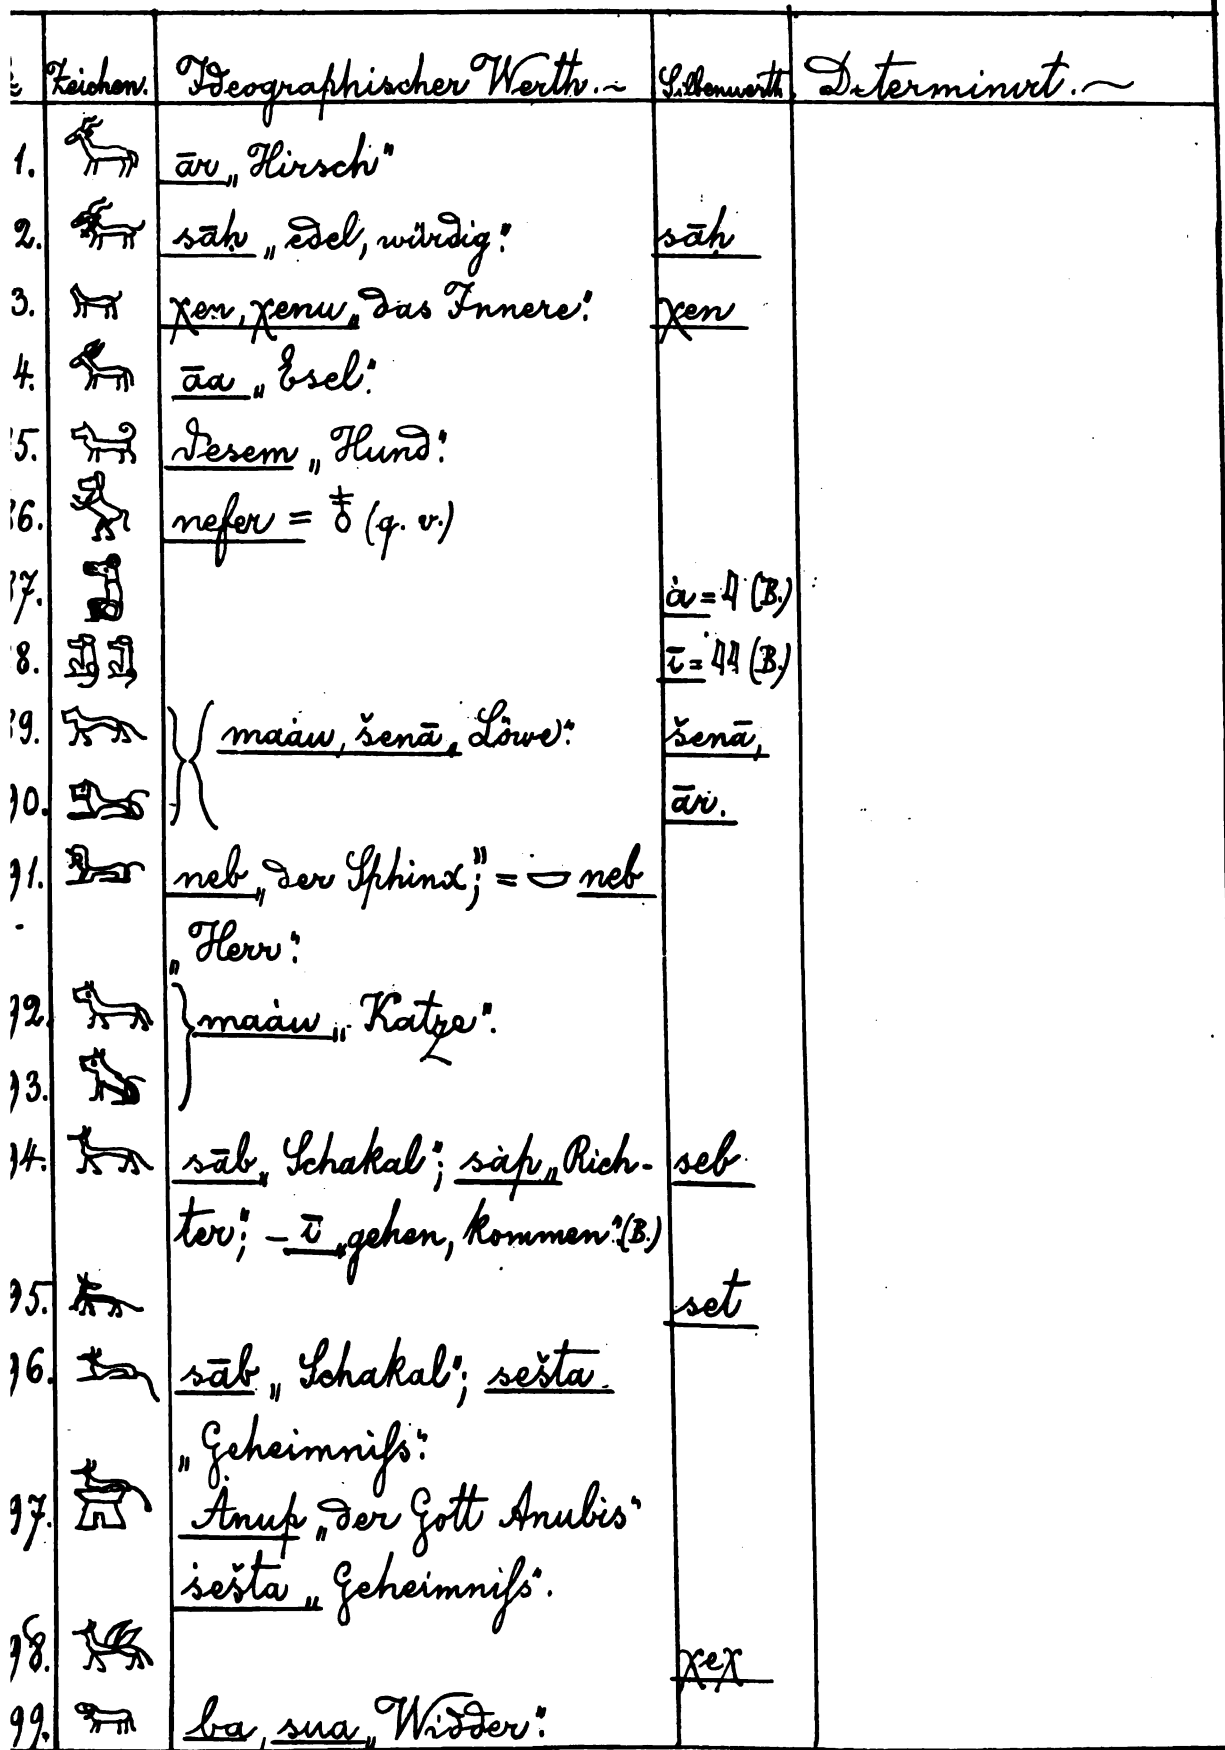 Zeichen. Ideographischer Werth. Silbenwerth. Determinirt.
1. ār „Hirsch"
2. sāḥ „edel, würdig". sāḥ
3. χen, χenu „das Innere". χen
4. āa „Esel".
5. ṭesem „Hund".
6. nefer = 𓄤 (q. v.)
7. ȧ = 𓇋 (B.)
8. ī = 𓇋𓇋 (B.)
9. maȧu, šenā „Löwe". šenā,
90. ār.
91. neb „der Sphinx"; = 𓎟 neb
„Herr".
92. maȧu „Katze".
93.
94. sāb „Schakal"; sȧp „Rich- seb
ter"; – ī „gehen, kommen". (B.)
95. set
96. sāb „Schakal"; sešta
„Geheimniſs".
97. Ȧnup „der Gott Anubis"
sešta „Geheimniſs".
98. χeχ
99. ba, sua „Widder".